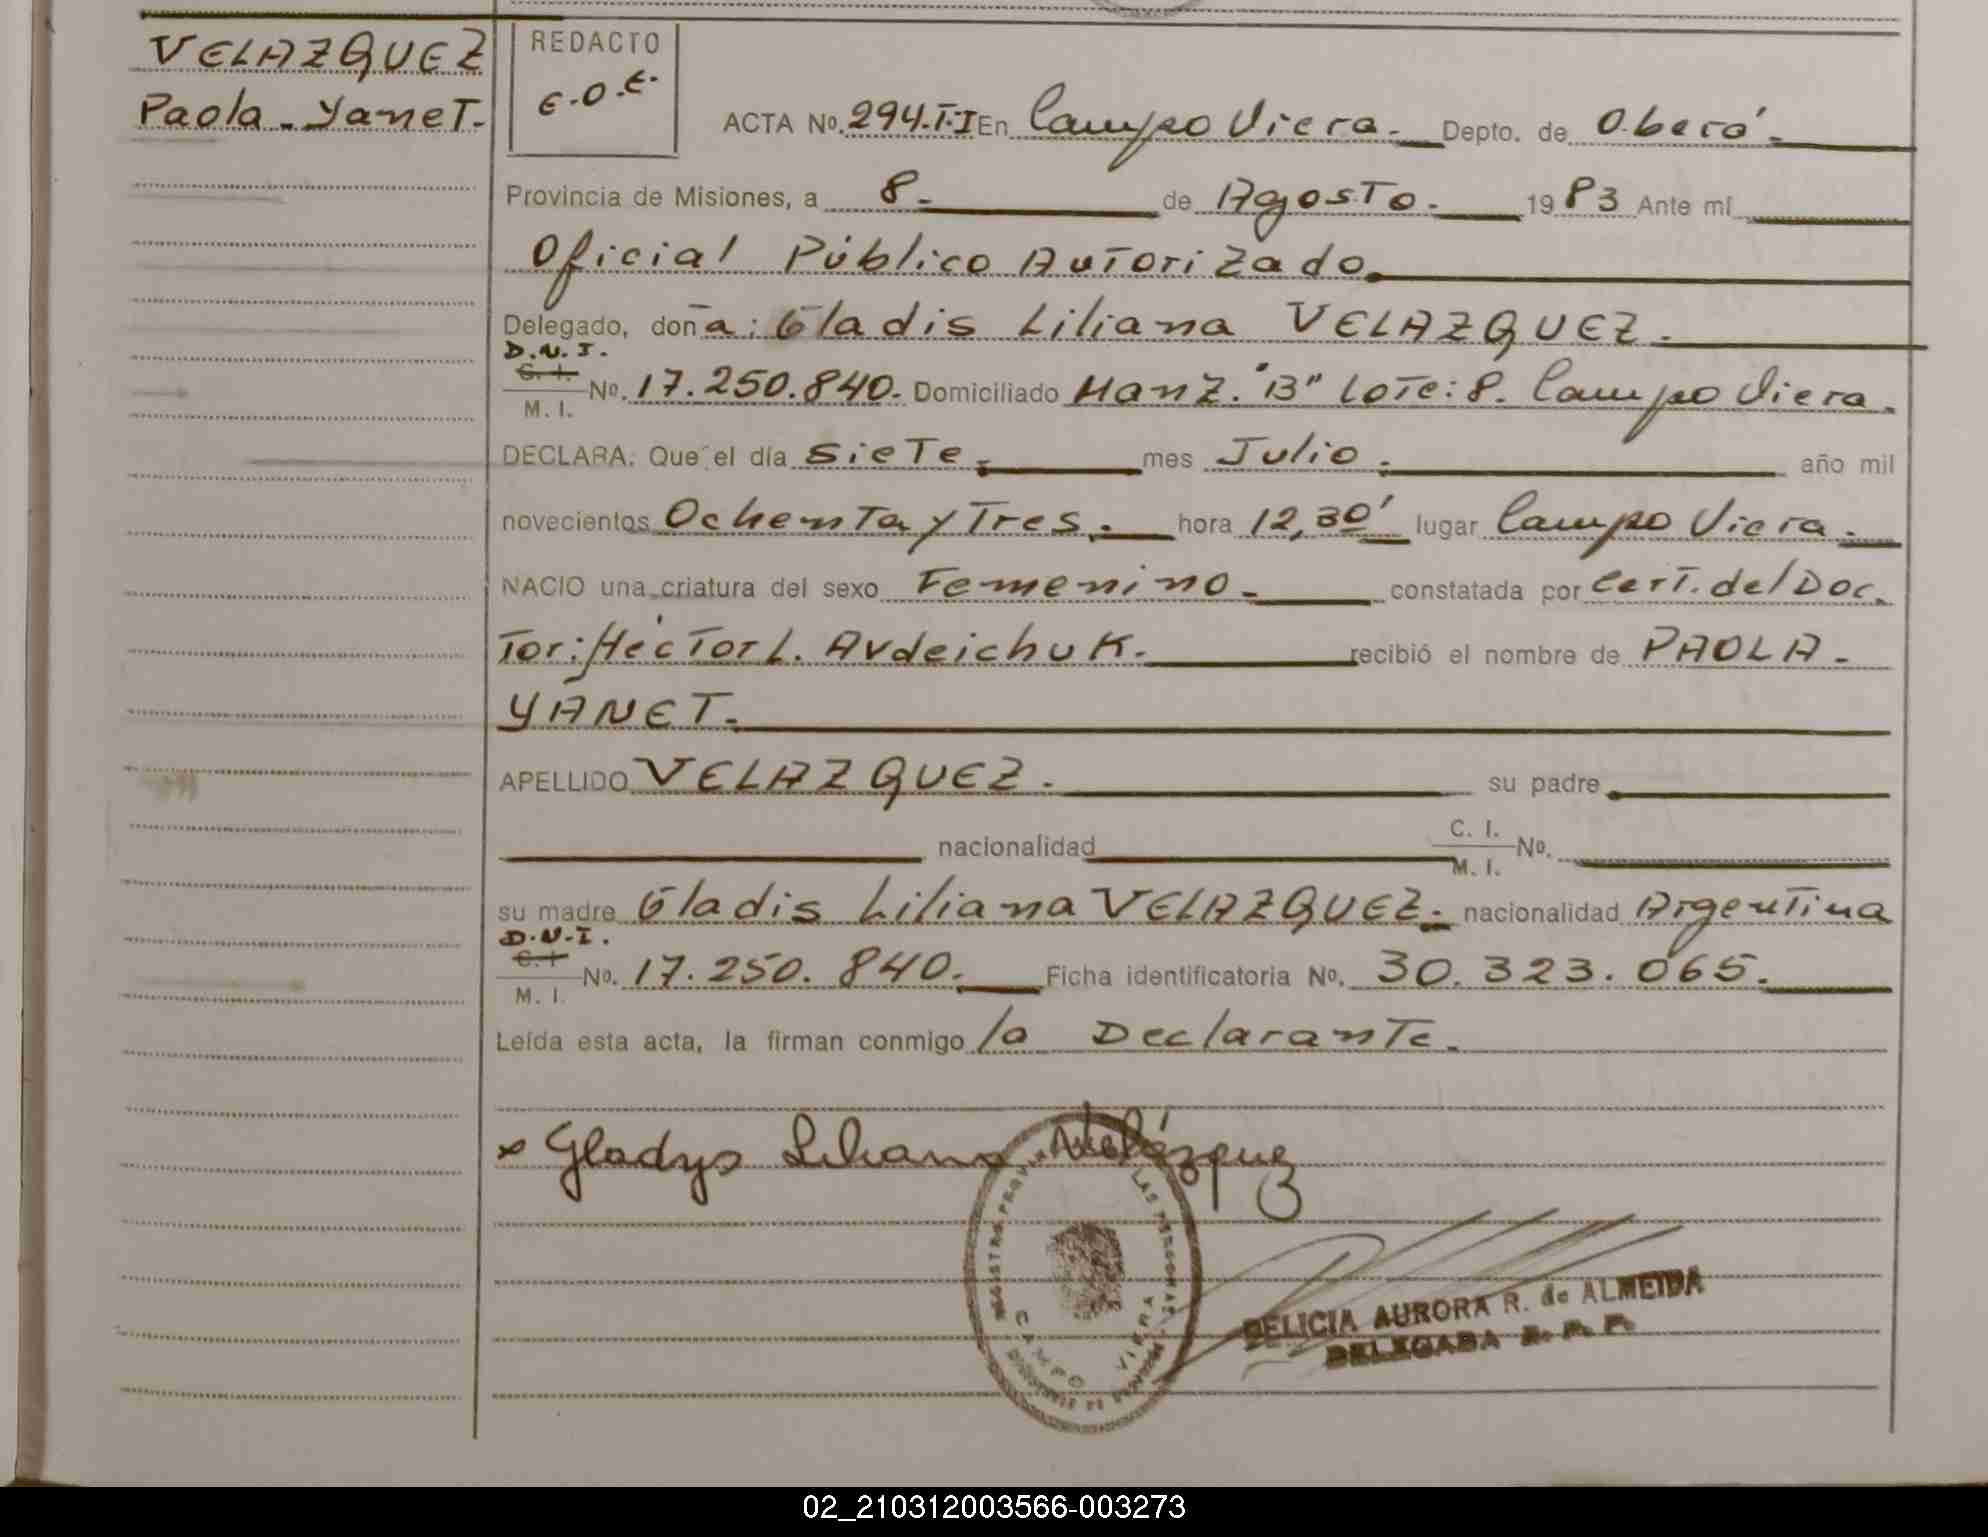 VELAZQUEZ
Paola - Yanet.
REDACTO
E.O.E.
ACTA Nº. 294.T-I En Campo Viera. Depto. de Oberá.
Provincia de Misiones, a 8. de Agosto. 1983 Ante mí
Oficial Público Autorizado
Delegado, doña: Gladis Liliana VELAZQUEZ.
D.N.I.
C. I.
M. I. Nº. 17.250.840. Domiciliado Manz. "B" Lote: 8. Campo Viera.
DECLARA: Que el día siete. mes Julio. año mil
novecientos Ochenta y Tres. hora 12,30' lugar Campo Viera.
NACIO una criatura del sexo Femenino. constatada por Cert. del Doc.
Tor: Héctor L. Avdeichuk. recibió el nombre de PAOLA.
YANET.
APELLIDO VELAZQUEZ. su padre
nacionalidad C. I. M. I. Nº.
su madre Gladis Liliana VELAZQUEZ. nacionalidad Argentina
D.N.I.
C. I
M. I. Nº. 17.250.840. Ficha identificatoria Nº. 30.323.065.
Leída esta acta, la firman conmigo la Declarante.
x Gladys Liliana Velázquez
REGISTRO PROV. LAS PERSONAS
CAMPO VIERA
DELICIA AURORA R. de ALMEIDA
DELEGADA R. P. P.
02_210312003566-003273